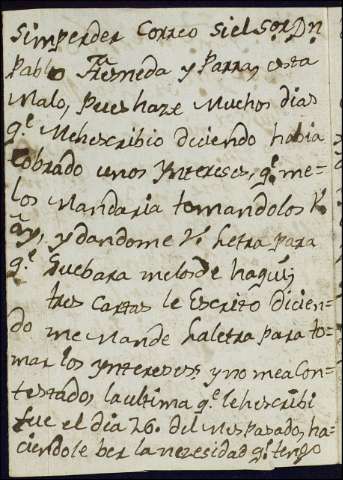 Simperder Correo siel S.or D.n
Pablo Fresneda y Parra, esta
Malo, pues haze Muchos dias
q.e Mehescribio diciendo habia
Cobrado unos Yntereses, q.e me-
los Mandaria tomandolos
ay, y dandome V. Letra para
q.e Guebara melosde haqui,
tres Cartas le Escrito dicien-
do me Mande haletra para to-
mar los Yntereses y no mea Con-
testado, laultima q.e lehescribi
fue el dia 26. del Mes pasado, ha-
ciendole ber la necesidad q.e tengo